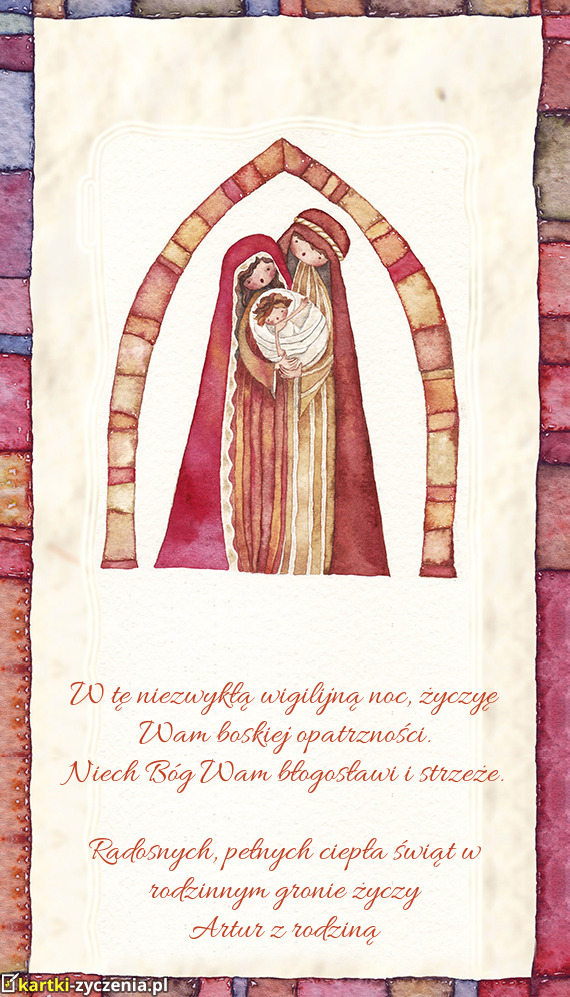 W tę niezwykłą wigilijną noc, życzyę
Wam boskiej opatrzności.
Niech Bóg Wam błogosławi i strzeże.
Radosnych, pełnych ciepła świąt w
rodzinnym gronie życzy
Artur z rodziną
kartki-zyczenia.pl